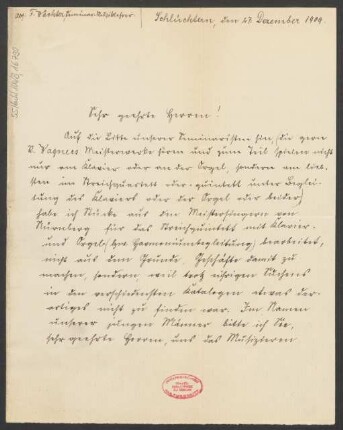 Schlüchtern, den 27. Dezember 1909.
Sehr geehrte Herren!
Auf die Bitte unserer Seminaristen hin, die gern
R. Wagners Meisterwerke hören und zum Teil spielen nicht
nur am Klavier oder an der Orgel, sondern am lieb-
sten im Streichquartett oder -quintett unter Beglei-
tung des Klaviers oder der Orgel oder beider,
habe ich Stücke aus den Meistersingern von
Nürnberg für das Streichquintett mit Klavier-
und Orgel (bzw. Harmoniumbegleitung) bearbeitet,
nicht aus dem Grunde, Geschäfte damit zu
machen, sondern, weil trotz eifrigen Suchens
in den verschiedensten Katalogen etwas der-
artiges nicht zu finden war. Im Namen
unserer jungen Männer bitte ich Sie,
sehr geehrte Herren, uns das Musizieren